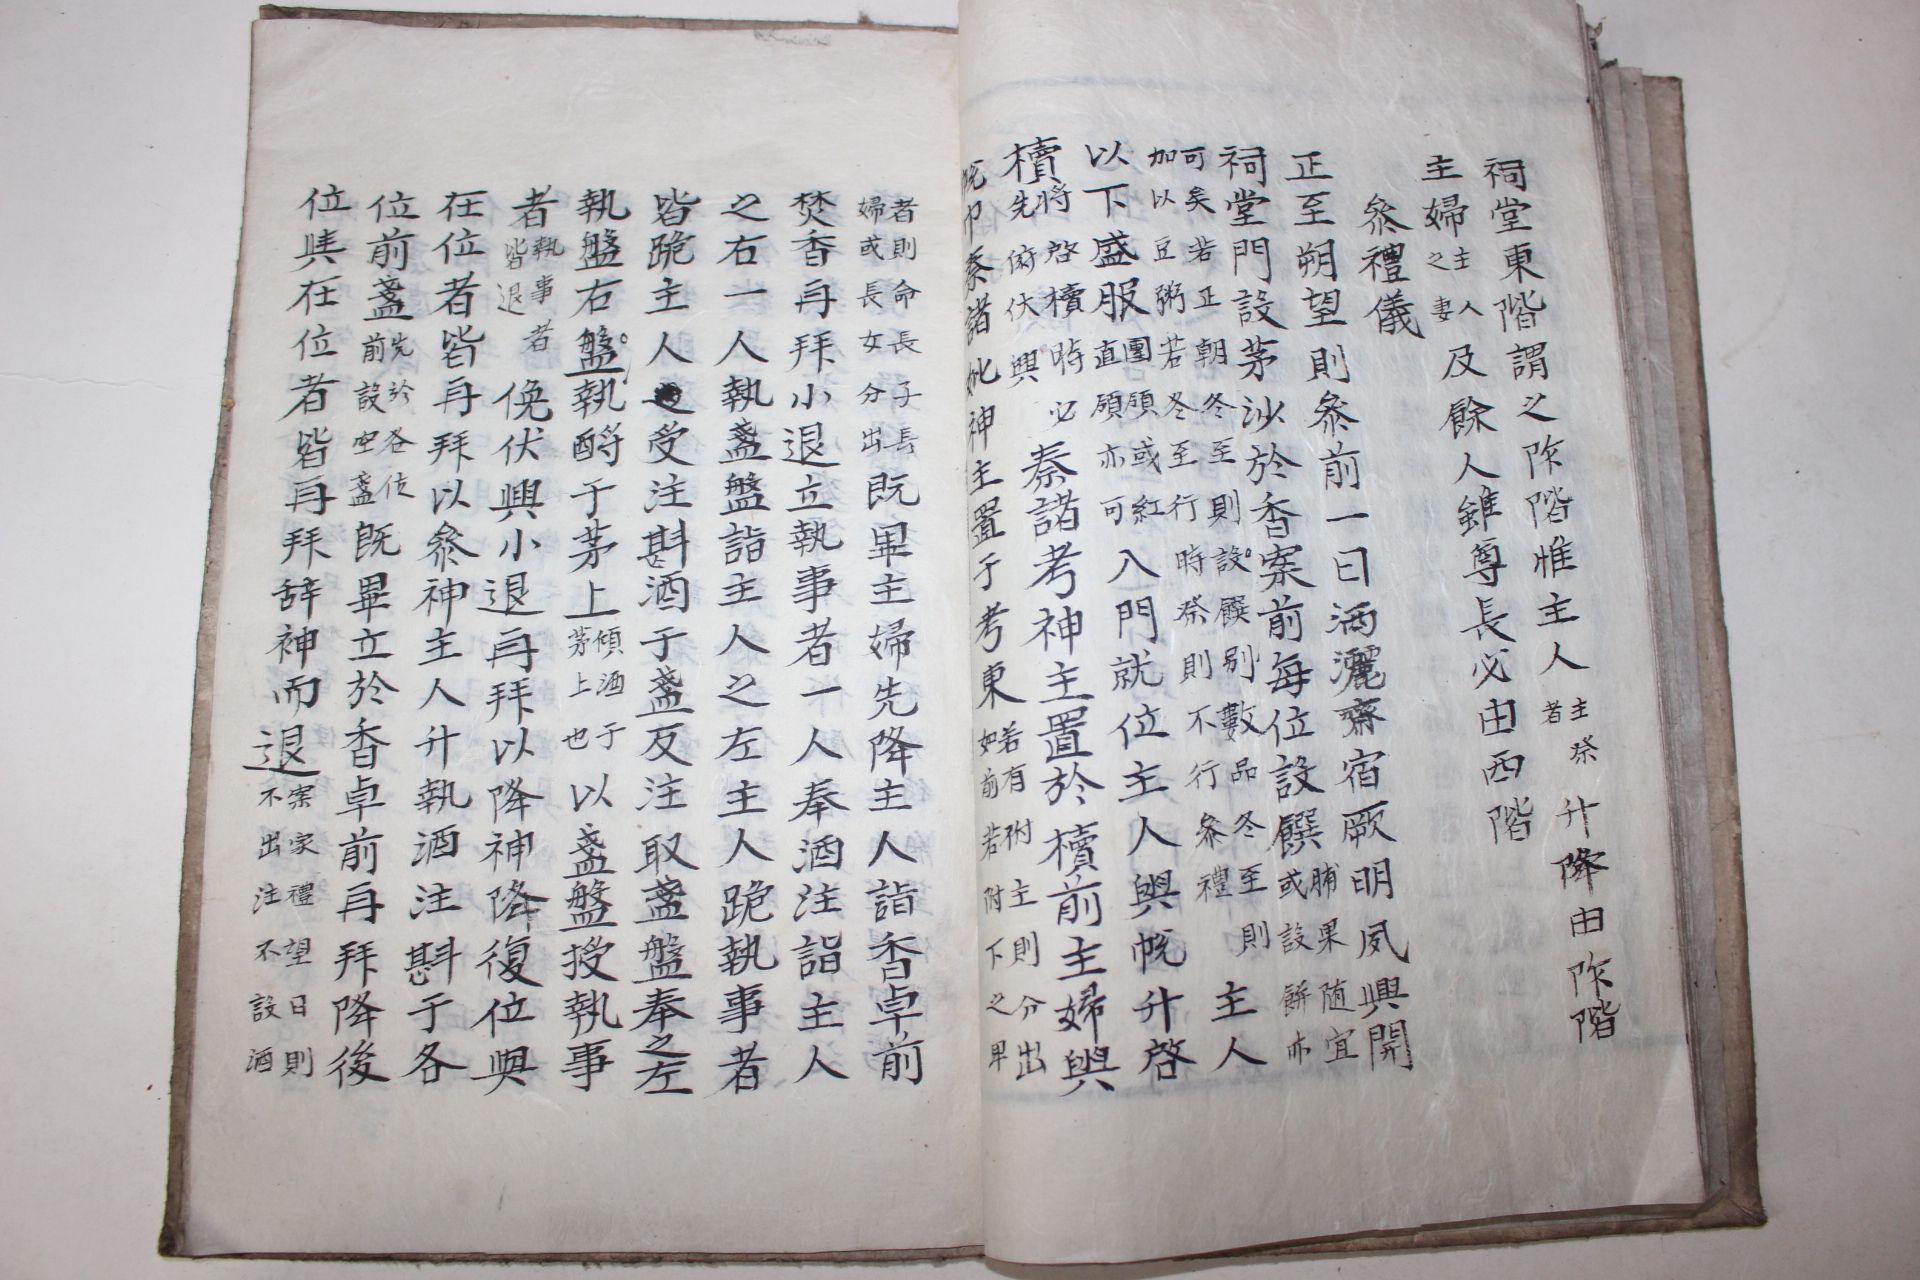 祠堂東階謂之阼階惟主人主祭者升降由阼階
主婦主人之妻及餘人雖尊長必由西階
叅禮儀
正至朔望則叅前一日洒灑齋宿厥明夙興開
祠堂門設茅沙於香案前每位設饌脯果随宜或設餅亦
可矣若正朝冬至則設饌別數品冬至則加以豆粥若冬至行時祭則不行叅禮主人
以下盛服團領或紅直領亦可入門就位主人與帨升啓
櫝將啓櫝時必先俯伏興奏諸考神主置於櫝前主婦與
帨巾奏諸妣神主置于考東若有祔主則分出如前若祔下之卑
者則命長子長婦或長女分出既畢主婦先降主人詣香卓前
焚香再拜小退立執事者一人奉酒注詣主人
之右一人執盞盤詣主人之左主人跪執事者
皆跪主人受注斟酒于盞反注取盞盤奉之左
執盤右盤執酹于茅上傾酒于茅上也以盞盤授執事
者執事者皆退俛伏興小退再拜以降神降復位與
在位者皆再拜以叅神主人升執酒注斟于各
位前盞先於各位前設空盞既畢立於香卓前再拜降後
位與在位者皆再拜辞神而退案家禮望日則不出注不設酒